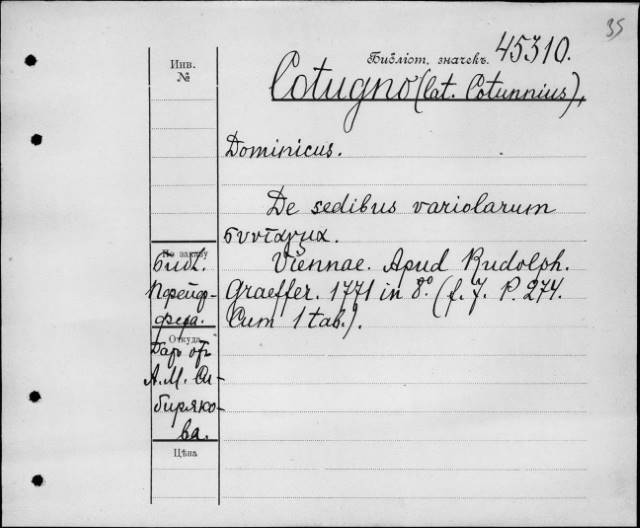 35
Библіот. значекъ. 45310.
Инв.
№
Cotugno (lat. Cotunnius),
Dominicus.
De sedibus variolarum
συνταγμα.
Viennae. Apud Rudolph.
Graeffer. 1771 in 8° (f. 7. P. 274.
Cum 1 tab.).
По заказу
Библ.
Пфейф-
фера.
Откуда
Даръ отъ
А. М. Си-
биряко-
ва.
Цѣна